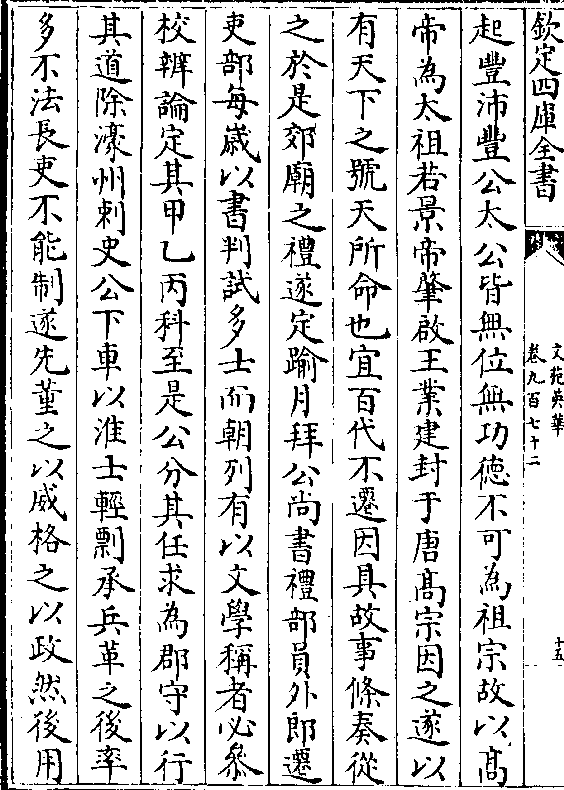 欽定四庫全書
文苑英華
卷九百七十二
十五
起豐沛豐公太公皆無位無功德不可為祖宗故以髙
帝為太祖若景帝肇啟王業建封于唐髙宗因之遂以
有天下之號天所命也宜百代不遷因具故事條奏從
之於是郊廟之禮遂定踰月拜公尚書禮部員外郎遷
吏部每嵗以書判試多士而朝列有以文學稱者必叅
校辨論定其甲乙丙科至是公分其任求為郡守以行
其道除濠州刺史公下車以淮士輕剽承兵革之後率
多不法長吏不能制遂先董之以威格之以政然後用